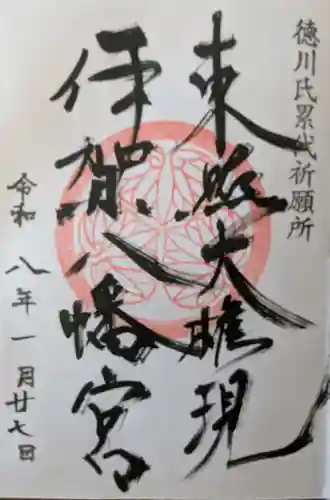 徳川氏累代祈願所
東照大権現
伊賀八幡宮
令和八年一月廿七日